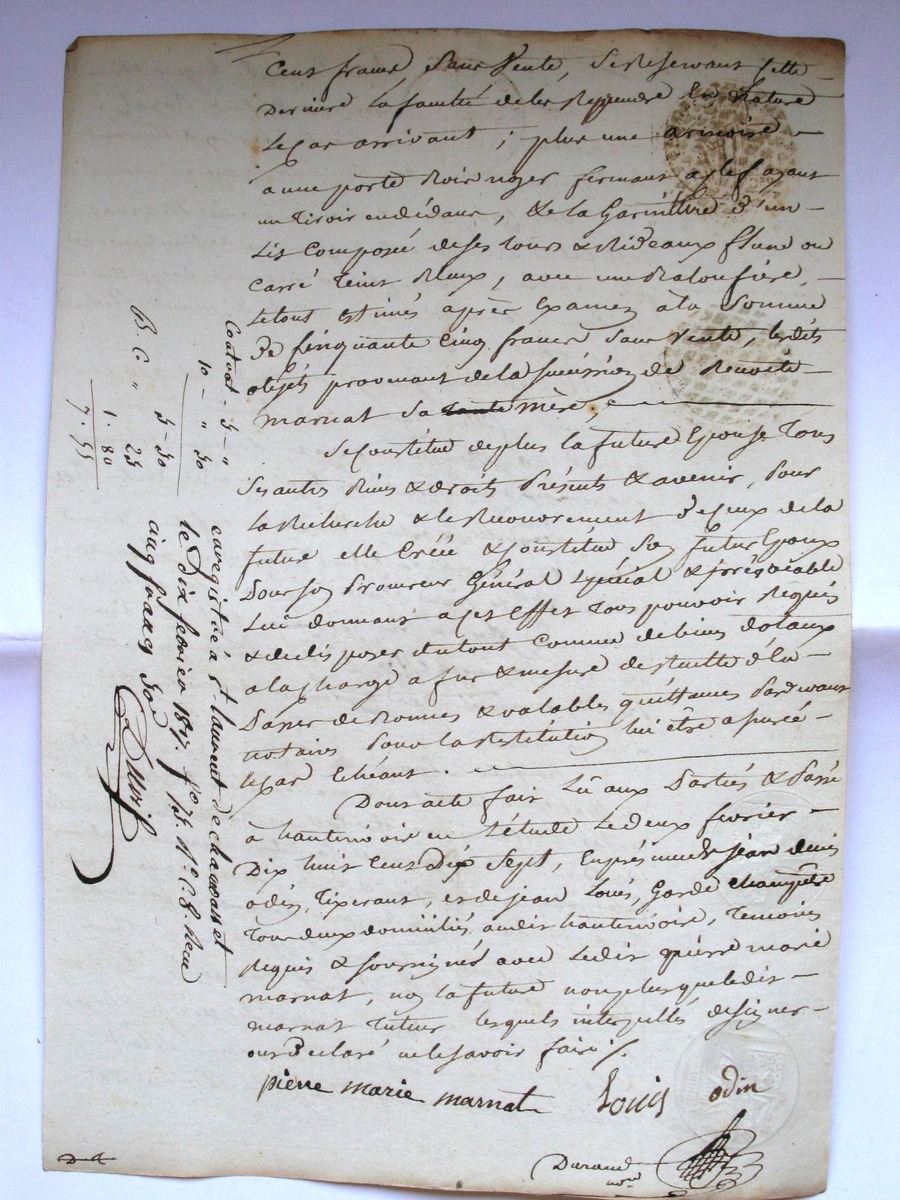 Cent francs, Sans Vente, se Reservant cette
Derniere la faculté de les Reprendre En Nature
le cas arrivant ; plus une armoire
a une porte Bois noyer fermant a clef ayant
un Tiroir en dedans, & de la Garniture d'un
Lit Composé de ses tours & Rideaux
carré teint Bleux, avec une
le tout Estimés après Examen a la Somme
de Cinquante Cinq francs Sans Vente, lesdits
objets provenant de la succession de Benoite
marnat sa mère,
se Constitue de plus la future Epouse Tous
ses autres Biens & droits Présents & avenir, Pour
la Recherche & le Recouvrement d'Iceux de la
future elle Créé & Constitue Son futur Epoux
Pour son Procureur Général spécial & irrévocable
Lui donnant a cet Effet Tous pouvoir Requis
& de disposer du tout Comme de biens dotaux
a la Charge a fur & mesure de Recette d'En
Passer de Bonnes & valables quittances Pardevant
notaires Pour la Restitution lui être assurée
le cas Echéant.
Dont acte fait Lû aux Parties & Passé
à hauterivoire en l'étude Le deux février
Dix huit Cent Dix Sept, En présence de jean denis
odin, Tixerant, et de jean Louis, Garde Champêtre
Tous deux domiciliés audit hauterivoire, Temoins
Requis & soussignés avec Ledit pierre marie
marnat, non la future non plus que ledit
marnat Tuteur lesquels interpellés de signer
ont Déclaré ne le savoir faire /.
pierre marie marnat Louis odin
Durand
nore
Contrat - 5 - "
10 - " 50
5 - 50
B. C " 25
1. 80
7. 55
enregistré à St laurent de chamousset
le Dix fevrier 1817. fo 75. Ro C. 8. Recu
cinq francs 50c